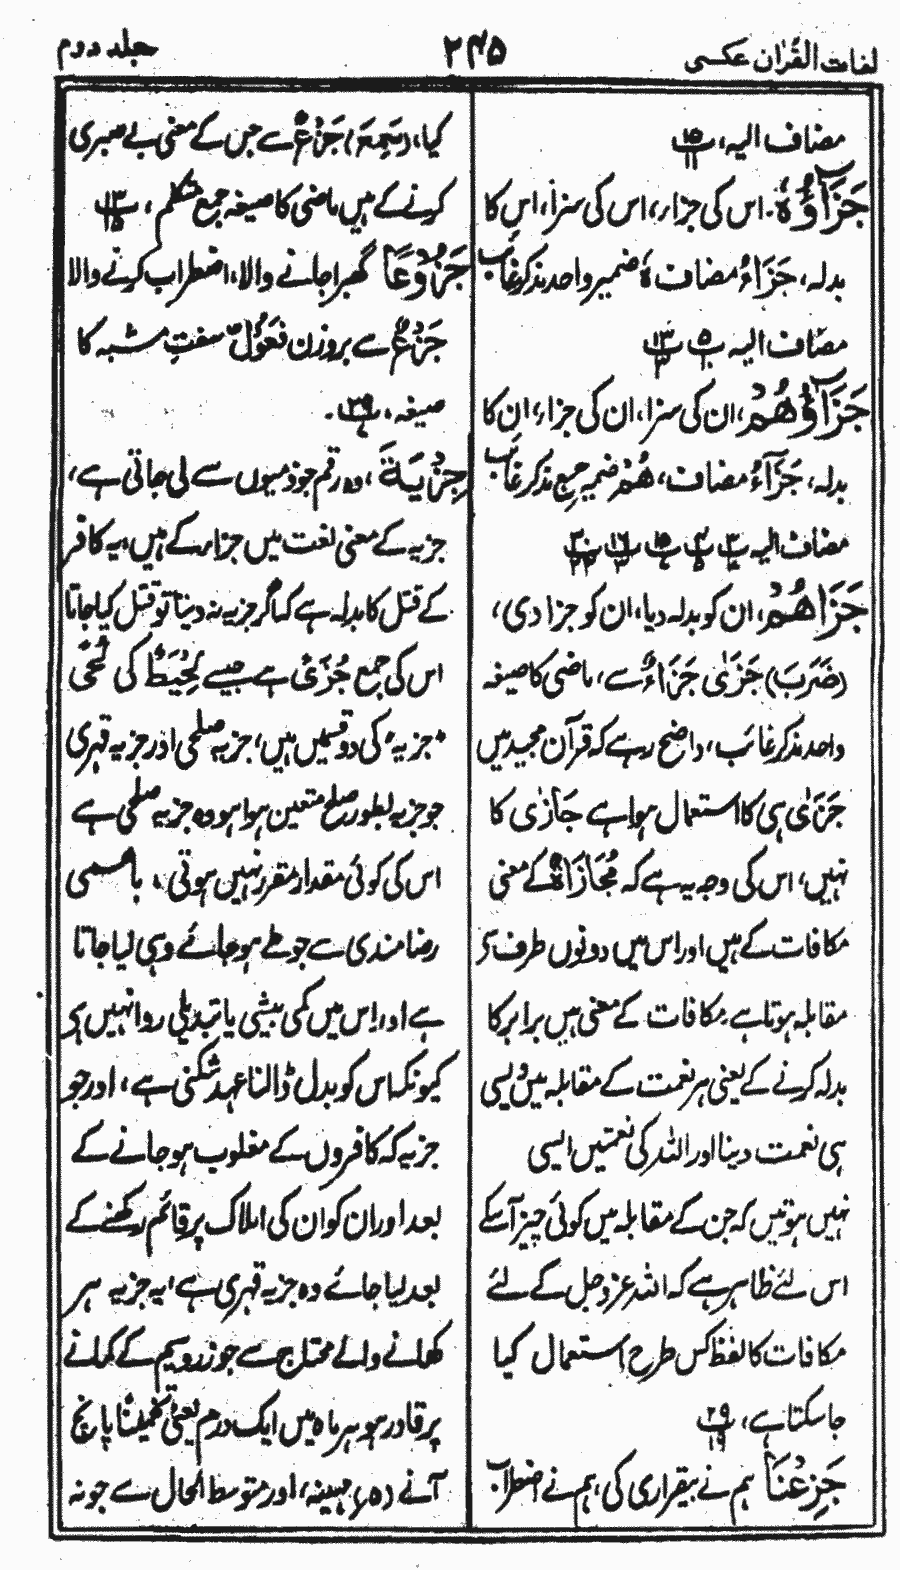 لغات القرآن عکسی
۲۴۵
جلد دوم
مضاف الیہ، پ ۱۵ ۱۱
جَزَآؤُہٗ۔ اس کی جزاء، اس کی سزا، اس کا
بدلہ، جَزَاءُ مضاف ہٗ ضمیر واحد مذکر غائب
مضاف الیہ پ ۵ ۱۰ پ ۱۳ ۳
جَزَآؤُھُمْ، ان کی سزا، ان کی جزاء، ان کا
بدلہ، جَزَآءُ مضاف، ھُمْ ضمیر جمع مذکر غائب
مضاف الیہ
جَزَاھُمْ، ان کو بدلہ دیا، ان کو جزا دی،
(ضَرَبَ) جَزٰی جَزَاءٌ سے، ماضی کا صیغہ
واحد مذکر غائب، واضح رہے کہ قرآن مجید میں
جَزَیٰ ہی کا استعمال ہوا ہے جَازٰی کا
نہیں، اس کی وجہ یہ ہے کہ مُجَازَاۃٌ کے معنی
مکافات کے ہیں اور اس میں دونوں طرف سے
مقابلہ ہوتا ہے۔ مکافات کے معنی ہیں برابر کا
بدلہ کرنے کے یعنی ہر نعمت کے مقابلہ میں ویسی
ہی نعمت دینا اور اللہ کی نعمتیں ایسی
نہیں ہوتیں کہ جن کے مقابلہ میں کوئی چیز آسکے
اس لئے ظاہر ہے کہ اللہ عزوجل کے لئے
مکافات کا لفظ کس طرح استعمال کیا
جا سکتا ہے، پ ۲۹ ۱۹
جَزِعْنَا ہم نے بیقراری کی، ہم نے اضطراب
کیا، (سَمِعَ) جَزْعٌ سے جس کے معنی بے صبری
کرنے کے ہیں ماضی کا صیغہ جمع متکلم، پ ۱۳ ۱۵
جَزُوْعًا گھبرا جانے والا، اضطراب کرنے والا
جَزْعٌ سے بروزن فَعُوْلٌ صفتِ مشبہ کا
صیغہ، پ ۲۹
جِزْیَۃَ، وہ رقم جو ذمیوں سے لی جاتی ہے،
جزیہ کے معنی لغت میں جزاء کے ہیں، یہ کافر
کے قتل کا بدلہ ہے کہ اگر جزیہ نہ دیتا تو قتل کیا جاتا
اس کی جمع جُزَیٌ ہے جیسے لِحْیَۃٌ کی لُحًی
"جزیہ" کی دو قسمیں ہیں، جزیہ صلحی اور جزیہ قہری
جو جزیہ بطور صلح متعین ہوا ہو وہ جزیہ صلحی ہے
اس کی کوئی مقدار مقرر نہیں ہوتی، باہمی
رضامندی سے جو طے ہو جائے وہی لیا جاتا
ہے اور اس میں کمی بیشی یا تبدیلی روا نہیں ہی
کیونکہ اس کو بدل ڈالنا عہد شکنی ہے، اور جو
جزیہ کہ کافروں کے مغلوب ہو جانے کے
بعد اور ان کو ان کی املاک پر قائم رکھنے کے
بعد لیا جائے وہ جزیہ قہری ہے، یہ جزیہ ہر
کھانے والے محتاج سے جو زرو سیم کے کمانے
پر قادر ہو ہر ماہ میں ایک درہم یعنی تخمینًا پانچ
آنے (۵؍) مہینہ، اور متوسط الحال سے جو نہ